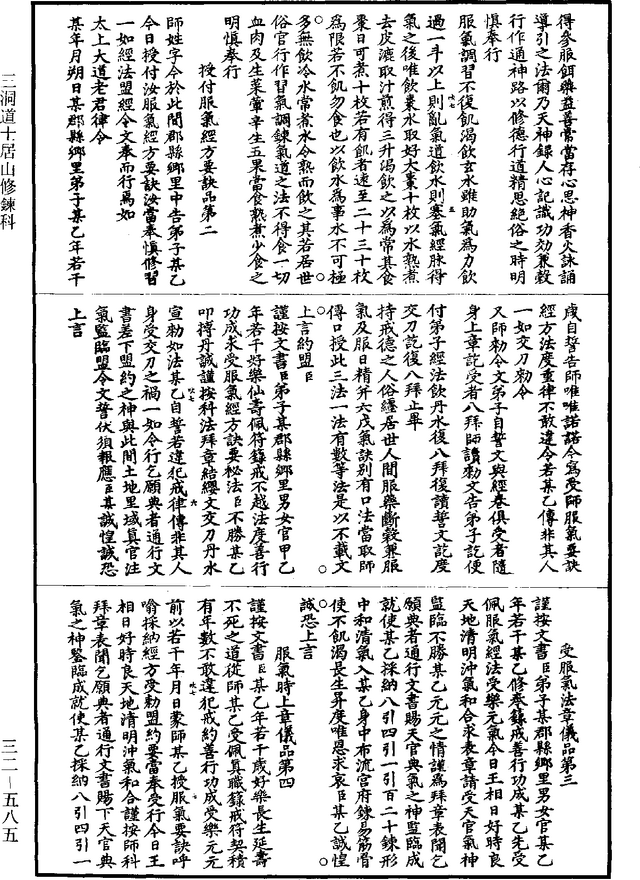 得參服餌藥益善常當存心思神香火詠誦
導引之法爾乃天神錄人心記識功効兼穀
行作通神路以修德行道精思絕俗之時明
慎奉行
服氣調習不復飢渴飲玄水雖助氣為力飲
過一斗以上則亂氣道飲水則塞氣經脉得
氣之後唯飲棗水取好大棗十枚以水熟煮
去皮滓取汁煎得三升渴飲之以為常其食
棗日可煮十枚若有飢者速至二十三十枚
為限若不飢勿食也以飲水為事水不可極
多無飲冷水常煮水令熟而飲之其若居世
俗官行作習氣調鍊氣道之法不得食一切
血肉及生菜葷辛生五果當食熟煮少食之
明慎奉行
授付服氣經方要訣品第二
師姓字今於此間郡縣鄉里中告弟子某乙
今日授付汝服氣經方要訣汝當奉慎修習
一如經法盟經令文奉而行焉如
太上大道老君律令
某年月朔日某郡縣鄉里弟子某乙年若干
歲自誓告師唯唯諾諾今寫受師服氣要訣
經方法度重律不敢違令若某乙傳非其人
一如交刀勑令
又師勑令文弟子自誓文與經卷俱受者隨
身上章訖受者八拜師讀勑文告弟子訖便
付弟子經法飲丹水復八拜復讀誓文訖度
交刀訖復八拜止畢
持戒德之人俗纏居世人間服藥斷穀兼服
氣及服日精并六戊氣訣別有口法當取師
傳口授此三法一法有數等法是以不載文
上言約盟臣
謹按文書臣弟子某郡縣鄉里男女官甲乙
年若干好樂仙壽佩符籙戒不越法度善行
功成求受服氣經方訣要祕法臣不勝某乙
叩搏丹誠謹按科法拜章結纓文交刀丹水
宣勑如法某乙自誓若違犯戒律傳非其人
身受交刀之禍一如令行乞願典者通行文
書差下盟約之神與此間土地里域真官注
氣監臨盟令文誓伏須報應臣某誠惶誠恐
上言
受服氣法章儀品第三
謹按文書臣弟子某郡縣鄉里男女官某乙
年若干某乙修奉籙戒善行功成某乙先受
佩服氣經法受樂元氣今日王相日好時良
天地清明沖氣和合求表章請受天官氣神
監臨不勝某乙元元之情謹為拜章表聞乞
願典者通行文書賜天官典氣之神監臨成
就使某乙採納八引四引一引百二十鍊形
中和清氣入某乙身中布流宮府鍊易筋骨
使不飢渴長生昇度唯恩求哀臣某乙誠惶
誠恐上言
服氣時上章儀品第四
謹按文書臣某乙年若干歲好樂長生延壽
不死之道從師某乙受佩真職籙戒符契積
有年數不敢違犯戒約善行功成受樂元元
前以若干年月日蒙師某乙授服氣要訣呼
噏採納經方受勑盟約要當奉受行今日王
相日好時良天地清明沖氣和合謹按師科
拜章表聞乞願典者通行文書賜下天官典
氣之神鑒臨成就使某乙採納八引四引一
三洞道士居山修鍊科
三二—五八五